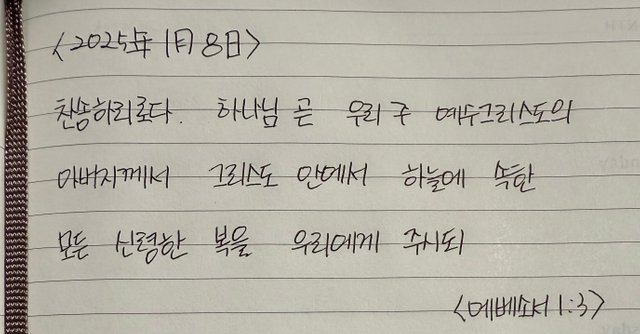 <2025年 1月 8日>
찬송하리로다. 하나님 곧 우리 주 예수그리스도의
아버지께서 그리스도 안에서 하늘에 속한
모든 신령한 복을 우리에게 주시되
<에베소서 1:3>